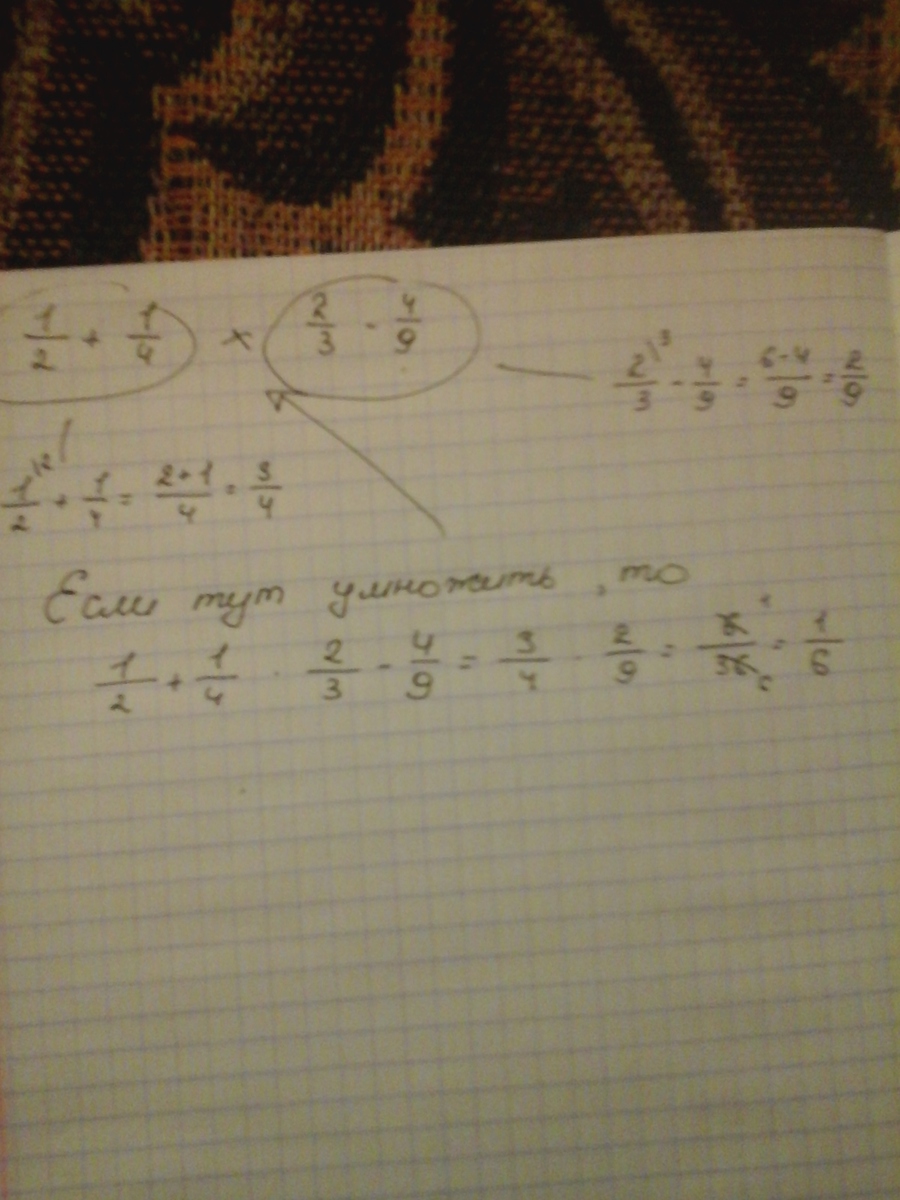 1/2 + 1/4 × 2/3 - 4/9
2/3 /3 - 4/9 = 6-4/9 = 2/9
1/2 /2 + 1/4 = 2+1/4 = 3/4
Если тут умножить, то
1/2 + 1/4 · 2/3 - 4/9 = 3/4 · 2/9 = 6/36 = 1/6